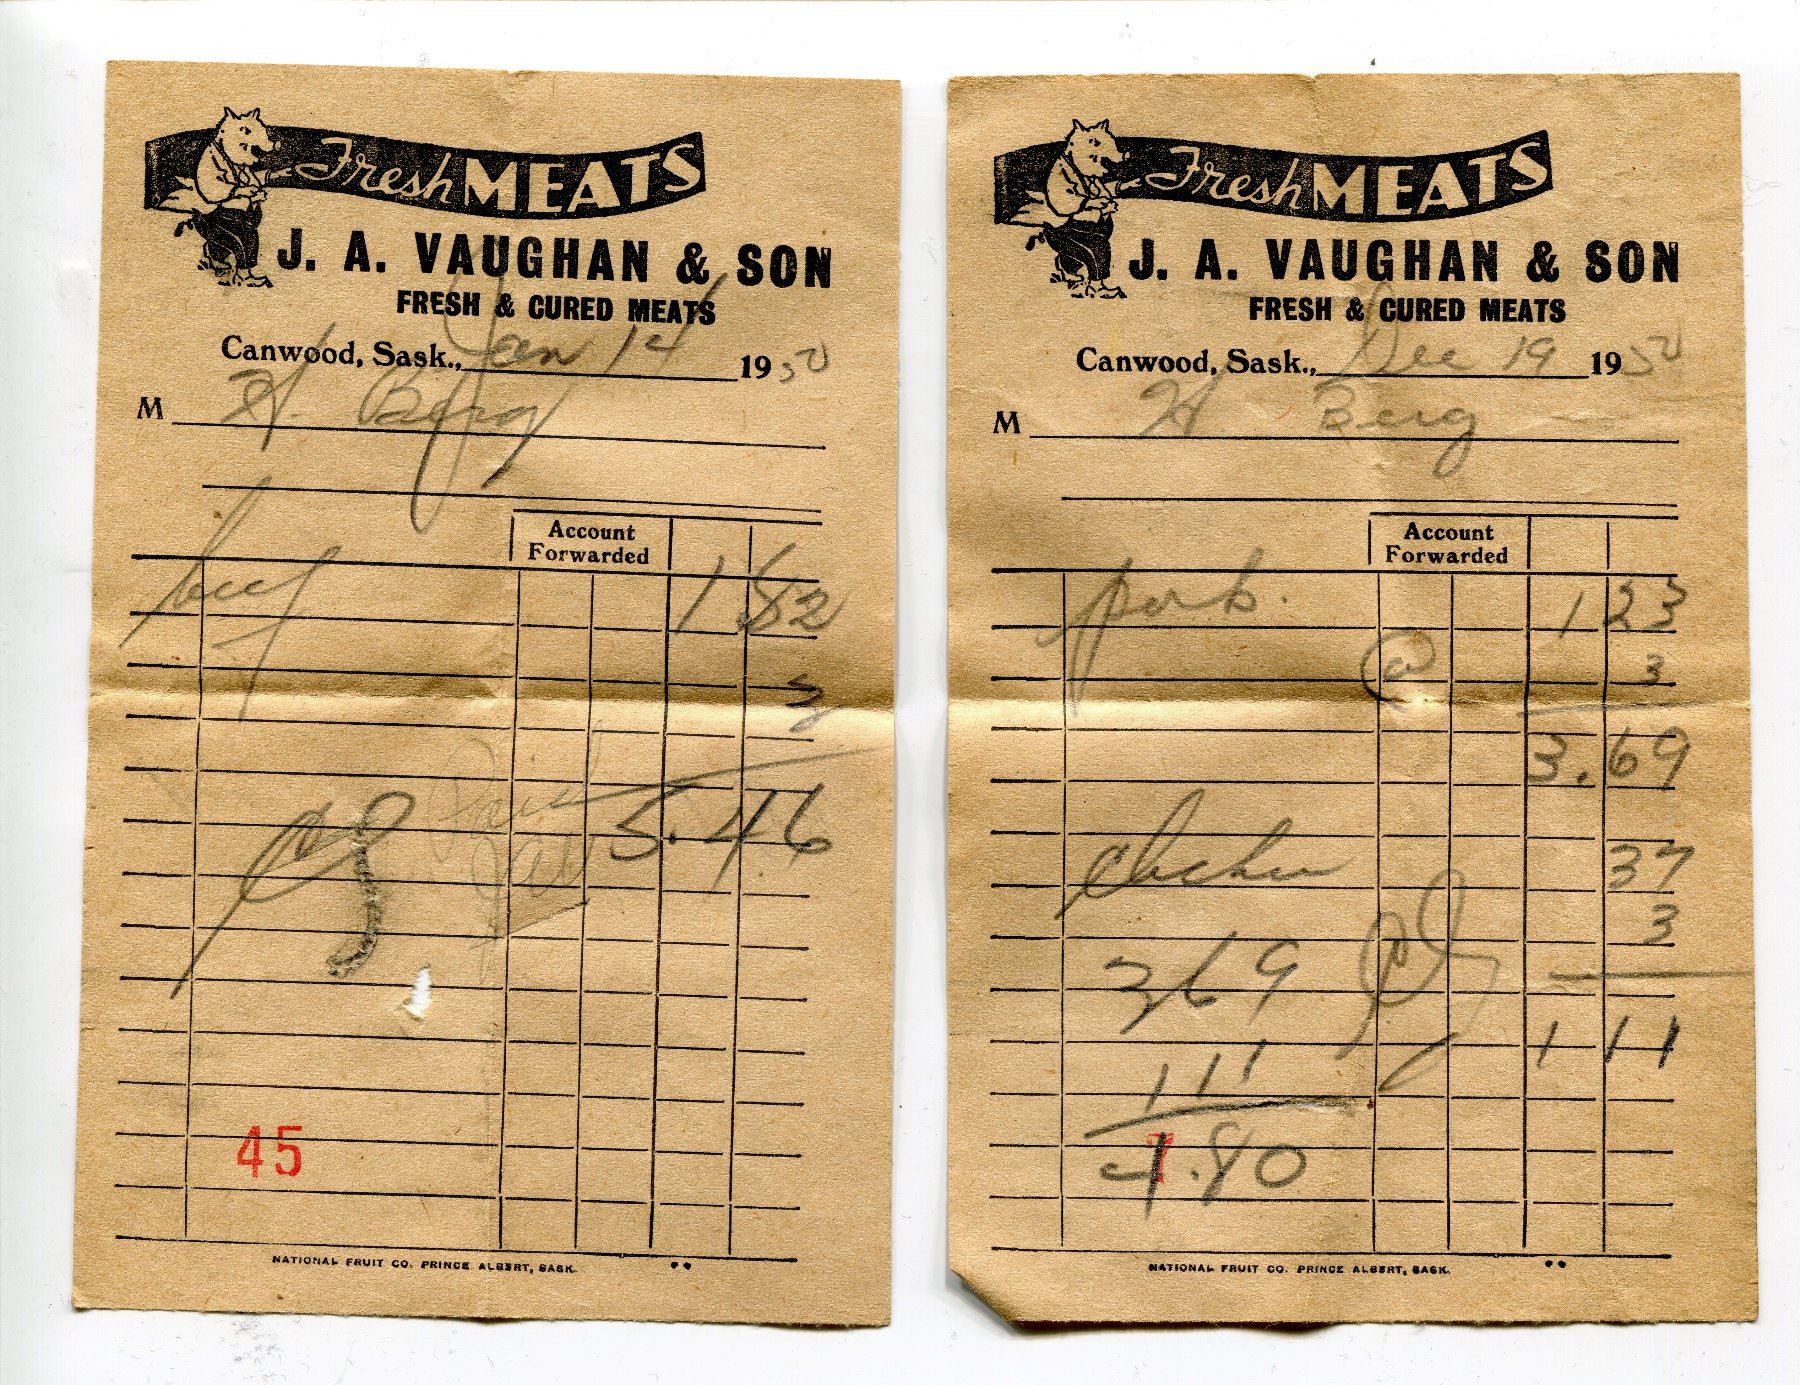 Fresh MEATS
J. A. VAUGHAN & SON
FRESH & CURED MEATS
Canwood, Sask., Jan 14 1952
M H. Berg
Account
Forwarded
beef 1 82
3
Paid
5.46
45
NATIONAL FRUIT CO. PRINCE ALBERT, SASK.
Fresh MEATS
J. A. VAUGHAN & SON
FRESH & CURED MEATS
Canwood, Sask., Dec 19 1952
M H Berg
Account
Forwarded
pork. 1 23
@ 3
3.69
chicken 37
3
369
1 11
111
4.80
NATIONAL FRUIT CO. PRINCE ALBERT, SASK.